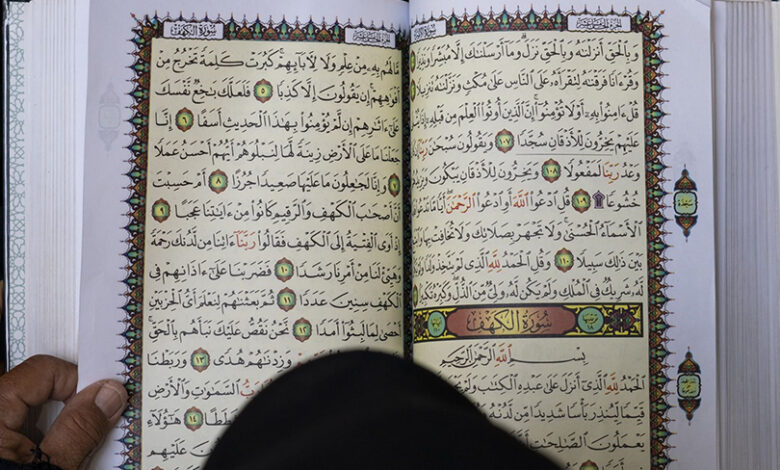 الجزء الخامس عشر
وَبِٱلْحَقِّ أَنزَلْنَٰهُ وَبِٱلْحَقِّ نَزَلَ وَمَآ أَرْسَلْنَٰكَ إِلَّا مُبَشِّرًا وَنَذِيرًا
وَقُرْءَانًا فَرَقْنَٰهُ لِتَقْرَأَهُۥ عَلَى ٱلنَّاسِ عَلَىٰ مُكْثٍ وَنَزَّلْنَٰهُ تَنزِيلًا
قُلْ ءَامِنُوا۟ بِهِۦٓ أَوْ لَا تُؤْمِنُوٓا۟ إِنَّ ٱلَّذِينَ أُوتُوا۟ ٱلْعِلْمَ مِن قَبْلِهِۦٓ إِذَا يُتْلَىٰ
عَلَيْهِمْ يَخِرُّونَ لِلْأَذْقَانِ سُجَّدًا ١٠٧ وَيَقُولُونَ سُبْحَٰنَ رَبِّنَآ إِن كَانَ
وَعْدُ رَبِّنَا لَمَفْعُولًا ١٠٨ وَيَخِرُّونَ لِلْأَذْقَانِ يَبْكُونَ وَيَزِيدُهُمْ
خُشُوعًا ۩ ١٠٩ قُلِ ٱدْعُوا۟ ٱللَّهَ أَوِ ٱدْعُوا۟ ٱلرَّحْمَٰنَ أَيًّا مَّا تَدْعُوا۟ فَلَهُ
ٱلْأَسْمَآءُ ٱلْحُسْنَىٰ وَلَا تَجْهَرْ بِصَلَاتِكَ وَلَا تُخَافِتْ بِهَا وَٱبْتَغِ
بَيْنَ ذَٰلِكَ سَبِيلًا ١١٠ وَقُلِ ٱلْحَمْدُ لِلَّهِ ٱلَّذِى لَمْ يَتَّخِذْ وَلَدًا وَلَمْ يَكُن
لَّهُۥ شَرِيكٌ فِى ٱلْمُلْكِ وَلَمْ يَكُن لَّهُۥ وَلِىٌّ مِّنَ ٱلذُّلِّ وَكَبِّرْهُ تَكْبِيرًا
سُورَةُ الكَهْفِ
بِسْمِ ٱللَّهِ ٱلرَّحْمَٰنِ ٱلرَّحِيمِ
ٱلْحَمْدُ لِلَّهِ ٱلَّذِىٓ أَنزَلَ عَلَىٰ عَبْدِهِ ٱلْكِتَٰبَ وَلَمْ
قَيِّمًا لِّيُنذِرَ بَأْسًا شَدِيدًا مِّن لَّدُنْهُ
يَعْمَلُونَ ٱلصَّٰلِحَٰتِ
الجزء الخامس عشر سورة الكهف
مَّا لَهُم بِهِۦ مِنْ عِلْمٍ وَلَا لِـَٔابَآئِهِمْ كَبُرَتْ كَلِمَةً تَخْرُجُ مِنْ
أَفْوَٰهِهِمْ إِن يَقُولُونَ إِلَّا كَذِبًا ٥ فَلَعَلَّكَ بَٰخِعٌ نَّفْسَكَ
عَلَىٰٓ ءَاثَٰرِهِمْ إِن لَّمْ يُؤْمِنُوا۟ بِهَٰذَا ٱلْحَدِيثِ أَسَفًا ٦ إِنَّا
جَعَلْنَا مَا عَلَى ٱلْأَرْضِ زِينَةً لَّهَا لِنَبْلُوَهُمْ أَيُّهُمْ أَحْسَنُ عَمَلًا
٧ وَإِنَّا لَجَٰعِلُونَ مَا عَلَيْهَا صَعِيدًا جُرُزًا ٨ أَمْ حَسِبْتَ
أَنَّ أَصْحَٰبَ ٱلْكَهْفِ وَٱلرَّقِيمِ كَانُوا۟ مِنْ ءَايَٰتِنَا عَجَبًا ٩
إِذْ أَوَى ٱلْفِتْيَةُ إِلَى ٱلْكَهْفِ فَقَالُوا۟ رَبَّنَآ ءَاتِنَا مِن لَّدُنكَ رَحْمَةً
وَهَيِّئْ لَنَا مِنْ أَمْرِنَا رَشَدًا ١٠ فَضَرَبْنَا عَلَىٰٓ ءَاذَانِهِمْ فِى
ٱلْكَهْفِ سِنِينَ عَدَدًا ١١ ثُمَّ بَعَثْنَٰهُمْ لِنَعْلَمَ أَىُّ ٱلْحِزْبَيْنِ
أَحْصَىٰ لِمَا لَبِثُوٓا۟ أَمَدًا ١٢ نَّحْنُ نَقُصُّ عَلَيْكَ نَبَأَهُم بِٱلْحَقِّ
وَزِدْنَٰهُمْ هُدًى ١٣ وَرَبَطْنَا
ٱلسَّمَٰوَٰتِ وَٱلْأَرْضِ
شَطَطًا ١٤ هَٰٓؤُلَآءِ
عَلَيْهِم